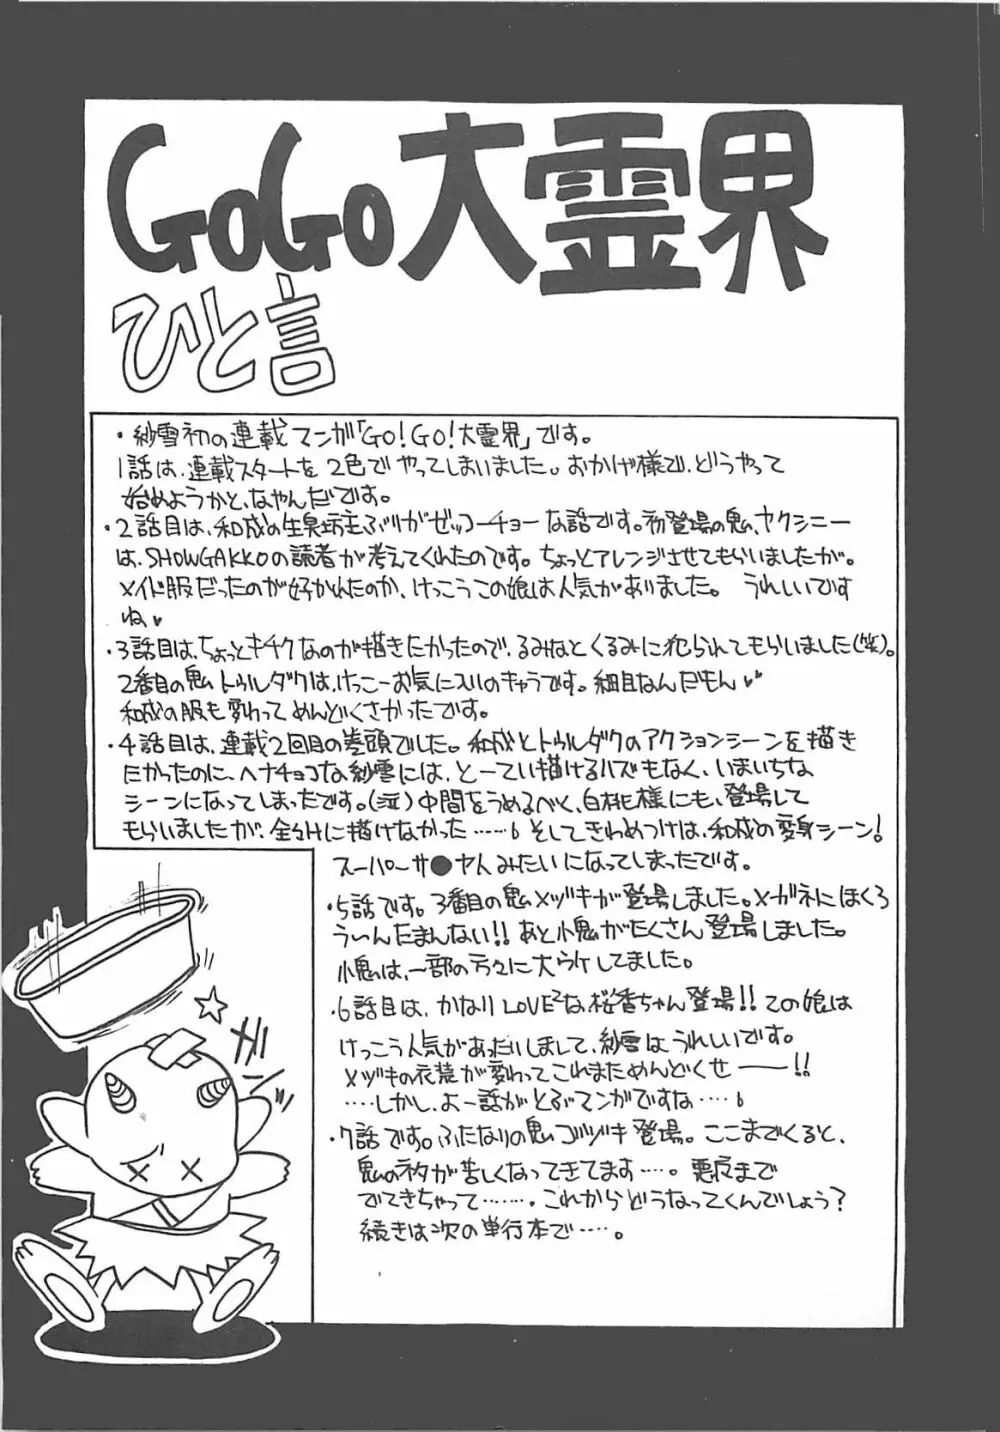 GoGo大霊界
ひと言
・紗雪初の連載マンガ「GO!GO!大霊界」です。
1話は、連載スタートを2色でやってしまいました。おかげ様で、どうやって
始めようかと、なやんだです。
・2話目は、和成の生臭坊主ぶりがゼッコーチョーな話です。初登場の鬼、ヤクシニー
は、SHOWGAKKOの読者が考えてくれたのです。ちょっとアレンジさせてもらいましたが。
メイド服だったのが好かれたのか、けっこうこの娘は人気がありました。 うれしいです
ね♥
・3話目は、ちょっとキチクなのが描きたかったので、るみなとくるみに犯られてもらいました(笑)。
2番目の鬼トゥルダクは、けっこーお気に入りのキャラです。細目なんだもん♥♥
和成の服も変わってめんどくさかったです。
・4話目は、連載2回目の巻頭でした。和成とトゥルダクのアクションシーンを描き
たかったのに、ヘナチョコな紗雪には、とーてい描けるハズもなく、いまいちな
シーンになってしまったです。(泣)中間をうめるべく、白桃様にも、登場して
もらいましたが、全々Hに描けなかった……。そしてきわめつけは、和成の変身シーン!
スーパーサ●ヤ人みたいになってしまったです。
・5話です。3番目の鬼メヅキが登場しました。メガネにほくろ
うぃんたまんない!!あと小鬼がたくさん登場しました。
小鬼は、一部の方々に大ウケしてました。
・6話目は、かなりLOVE²な、桜香ちゃん登場!!この娘は
けっこう人気があったりしまして、紗雪はうれしいです。
メヅキの衣装が変わってこれまためんどくせー――!!
……しかし、よー話がとぶマンガですな……。
・7話です。ふたなりの鬼ゴヅキ登場。ここまでくると、
鬼のネタが苦しくなってきてます……。悪反まで
でてきちゃって……。これからどうなってくんでしょう?
続きは次の単行本で……。